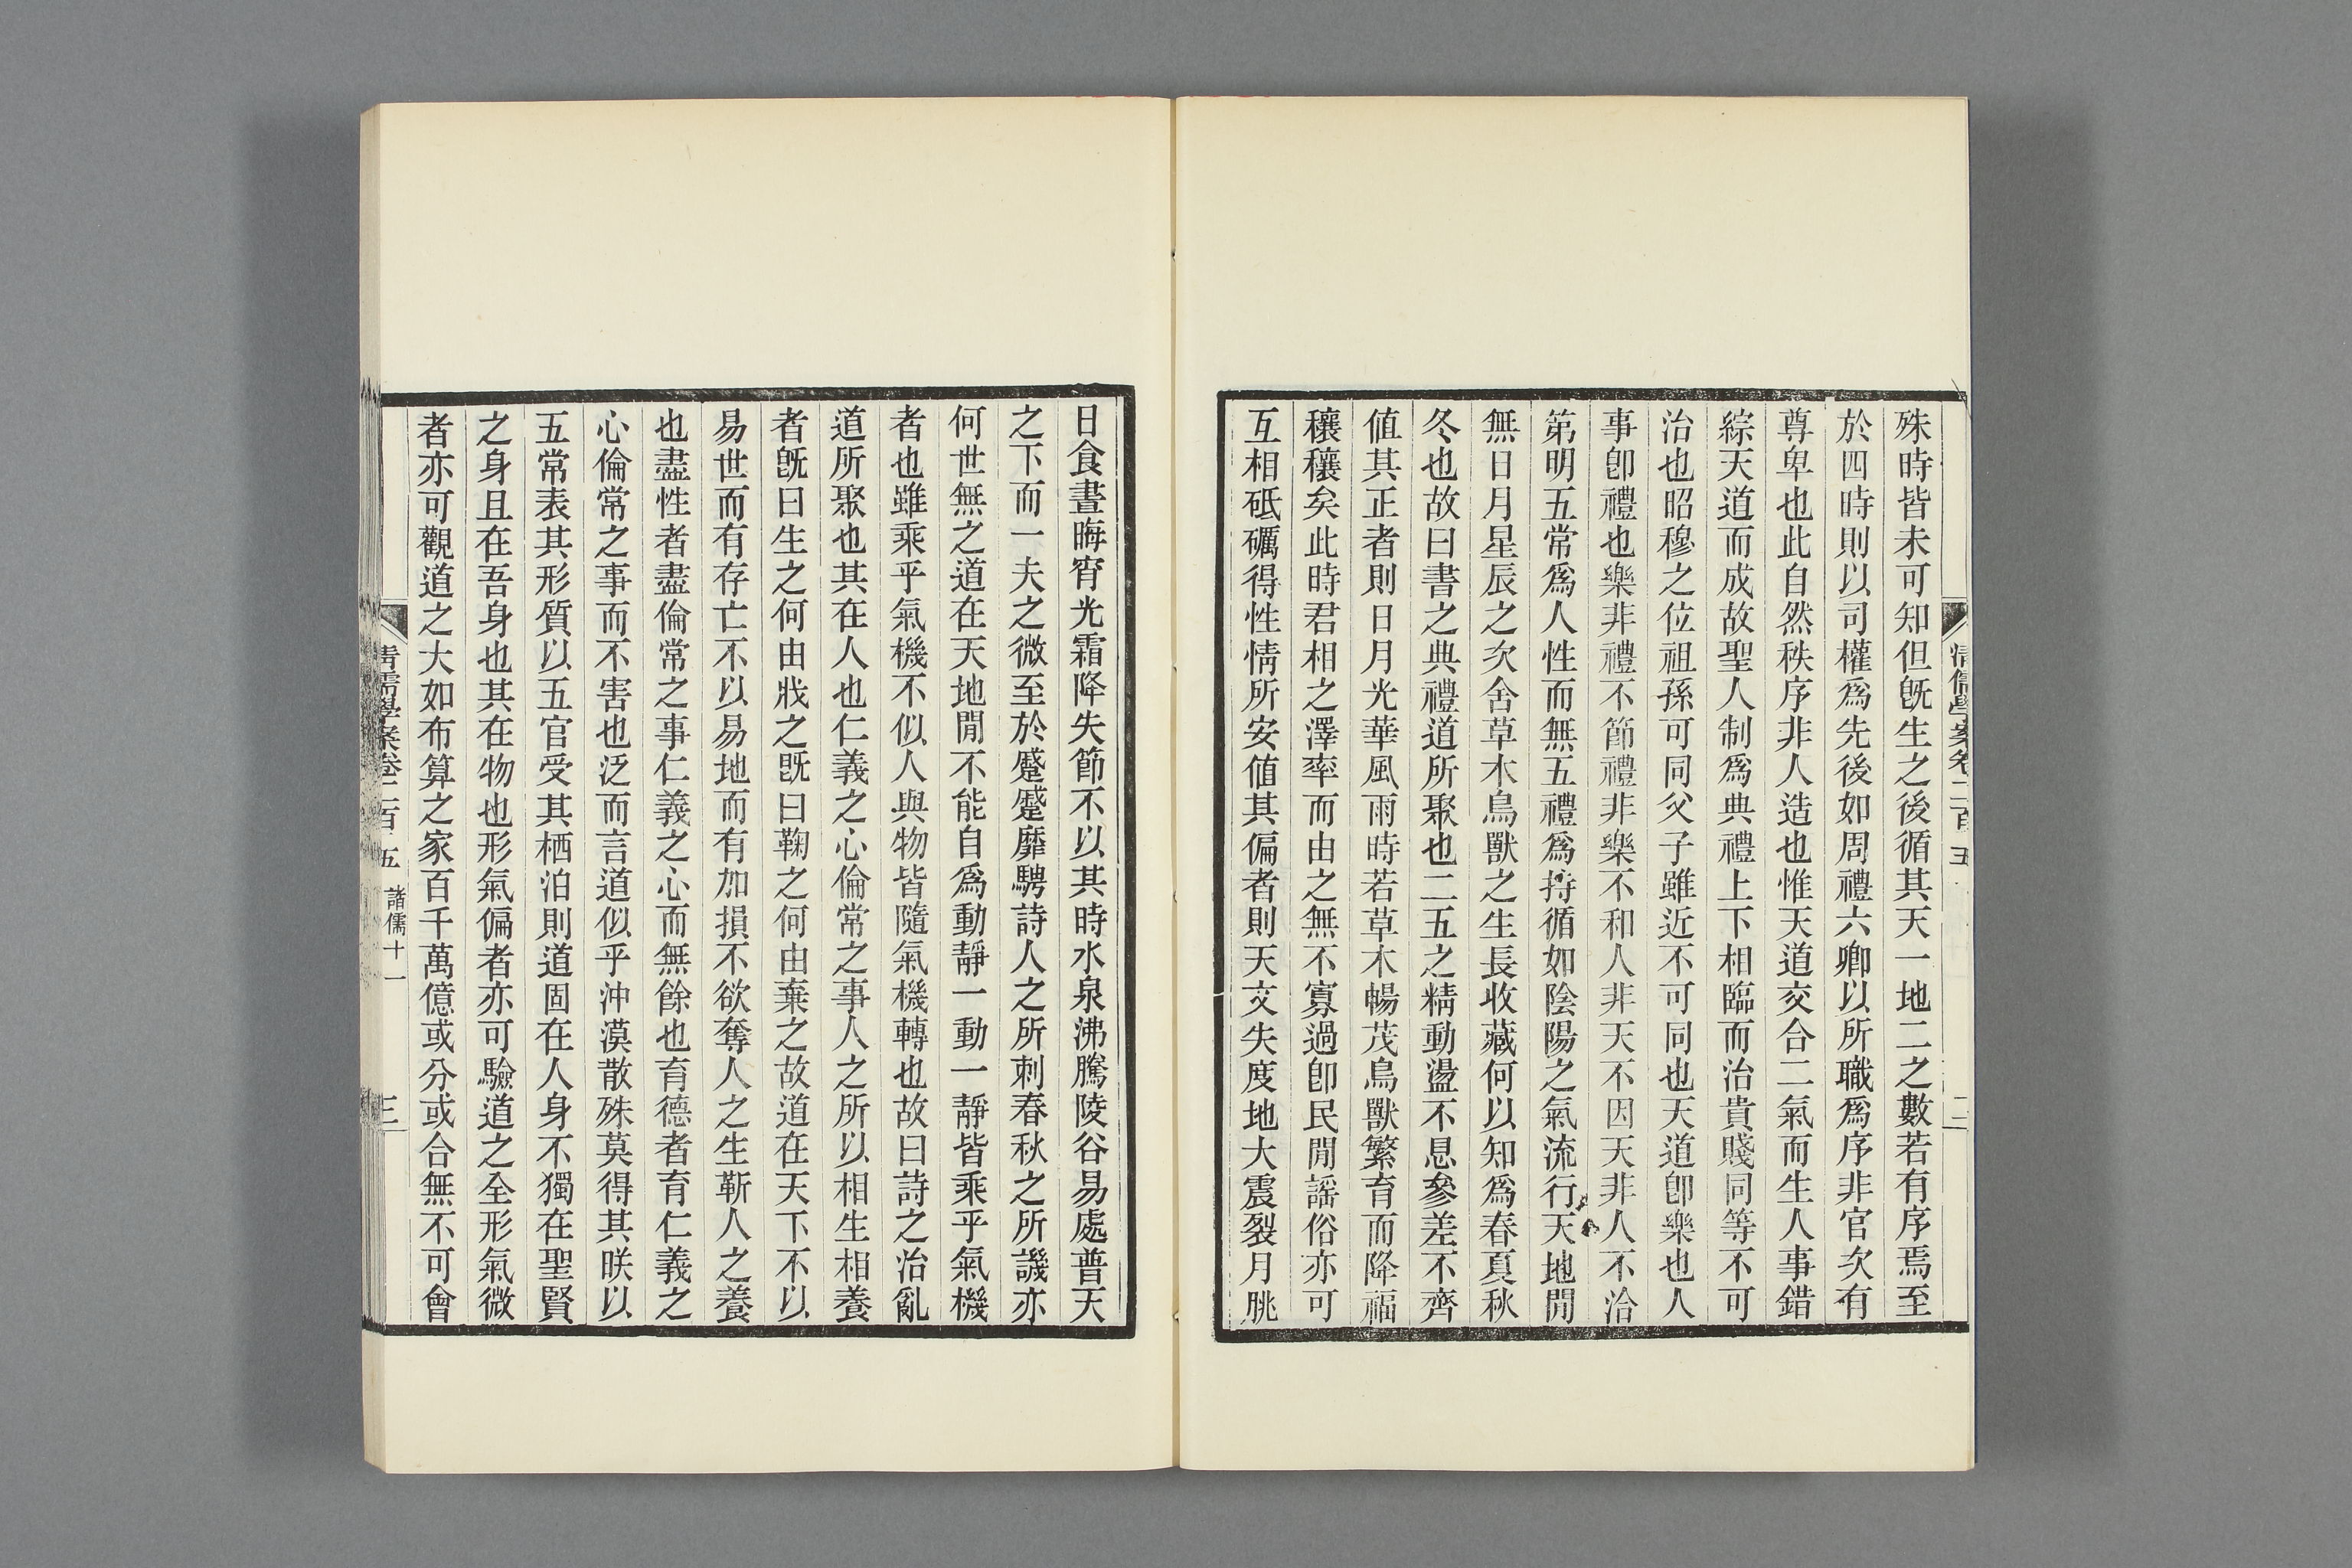 清儒學案卷二百五
二
殊時皆未可知但旣生之後循其天一地二之數若有序焉至
於四時則以司權爲先後如周禮六卿以所職爲序非官次有
尊卑也此自然秩序非人造也惟天道交合二氣而生人事錯
綜天道而成故聖人制爲典禮上下相臨而治貴賤同等不可
治也昭穆之位祖孫可同父子雖近不可同也天道卽樂也人
事卽禮也樂非禮不節禮非樂不和人非天不因天非人不洽
第明五常爲人性而無五禮爲持循如陰陽之氣流行天地閒
無日月星辰之次舍草木鳥獸之生長收藏何以知爲春夏秋
冬也故曰書之典禮道所聚也二五之精動盪不息參差不齊
値其正者則日月光華風雨時若草木暢茂鳥獸繁育而降福
穰穰矣此時君相之澤率而由之無不寡過卽民閒謠俗亦可
互相砥礪得性情所安値其偏者則天文失度地大震裂月朓
日食晝晦宵光霜降失節不以其時水泉沸騰陵谷易處普天
之下而一夫之微至於蹙蹙靡騁詩人之所刺春秋之所譏亦
何世無之道在天地閒不能自爲動靜一動一靜皆乘乎氣機
者也雖乘乎氣機不似人與物皆隨氣機轉也故曰詩之治亂
道所聚也其在人也仁義之心倫常之事人之所以相生相養
者旣曰生之何由戕之旣曰鞠之何由棄之故道在天下不以
易世而有存亡不以易地而有加損不欲奪人之生靳人之養
也盡性者盡倫常之事仁義之心而無餘也育德者育仁義之
心倫常之事而不害也泛而言道似乎沖漠散殊莫得其朕以
五常表其形質以五官受其栖泊則道固在人身不獨在聖賢
之身且在吾身也其在物也形氣偏者亦可驗道之全形氣微
者亦可觀道之大如布算之家百千萬億或分或合無不可會
清儒學案卷二百五 諸儒十一
三